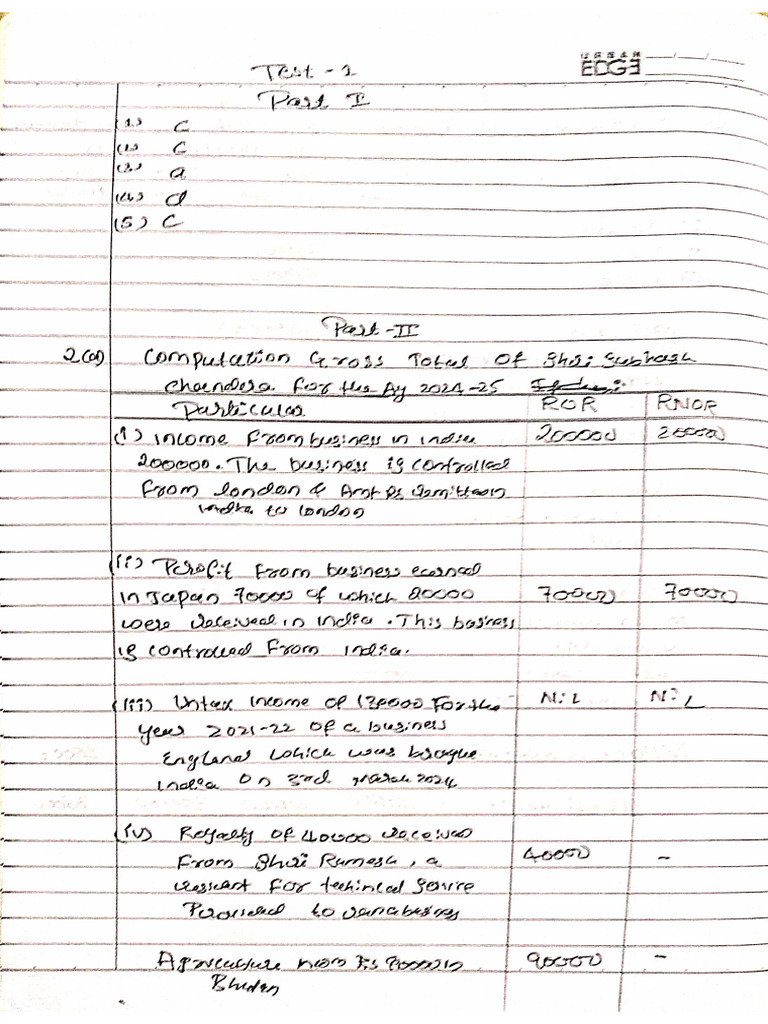 URBAN
EDGE
Test - 1
Part I
(1) C
(2) C
(3) a
(4) d
(5) C
Part - II
2(a) Computation Gross Total Of Shri Subhash
Chandra For the Ay 2024-25
Particular ROR RNOR
(i) Income From business in India 200000 200000
200000. The business is controlled
From London & Amt is remitted in
India to London
(ii) Profit From business earned
in Japan 70000 of which 20000 70000 70000
were received in India. This business
is controlled From India.
(iii) Untax Income of 120000 For the Nil Nil
year 2021-22 of a business
England which was
India on 3rd March 2024
(iv) Royalty of 40000 received
From Shri Ramesh, a 40000 -
resident for technical service
Provided to
Agriculture in 90000 -
Bhutan